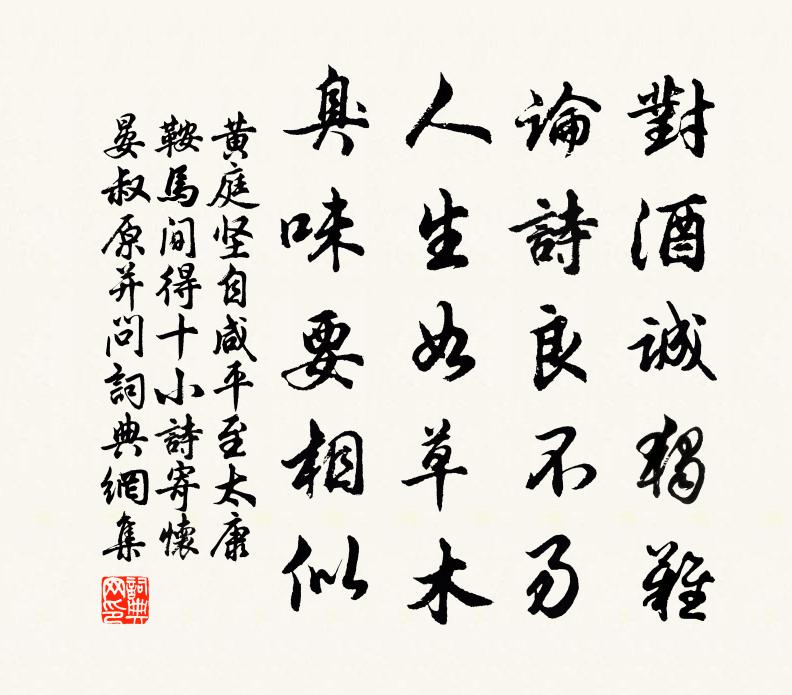 對酒誠獨難
論詩良不易
人生如草木
臭味要相似
黄庭坚自咸平至太康
鞍馬间得十小詩寄懷
晏叔原并问詞典網集
詞典網印